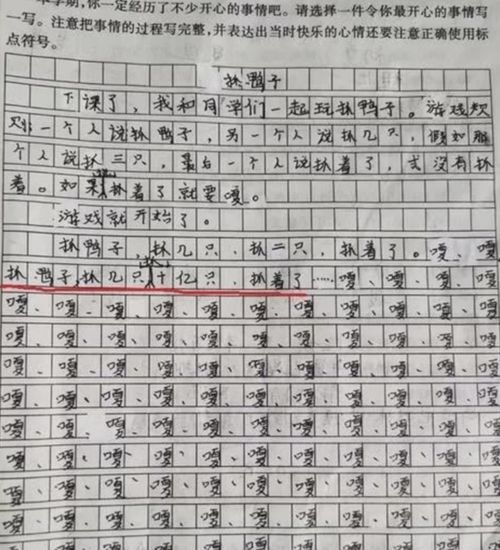 学期,你一定经历了不少开心的事情吧。请选择一件令你最开心的事情写
一写。注意把事情的过程写完整,并表达出当时快乐的心情还要注意正确使用标
点符号。
抓鸭子
下课了，我和同学们一起玩抓鸭子。游戏规
则：一个人说抓鸭子，另一个人说抓几只，假如那
个人说抓三只，最后一个人说抓着了，或没有抓
着。如果抓着了就要嘎。
游戏就开始了。
抓鸭子，抓几只，抓二只，抓着了。嘎、嘎
抓鸭子，抓几只，抓十亿只，抓着了……嘎、嘎、嘎、嘎、
嘎、嘎、嘎、嘎、嘎、嘎、嘎、嘎、嘎、嘎、嘎
嘎、嘎、嘎、嘎、嘎、嘎、嘎、嘎、嘎、嘎、嘎
嘎、嘎、嘎、嘎、嘎、嘎、嘎、嘎、嘎、嘎、嘎
嘎、嘎、嘎、嘎、嘎、嘎、嘎、嘎、嘎、嘎、嘎
嘎、嘎、嘎、嘎、嘎、嘎、嘎、嘎、嘎、嘎、嘎
嘎、嘎、嘎、嘎、嘎、嘎、嘎、嘎、嘎、嘎、嘎
嘎、嘎、嘎、嘎、嘎、嘎、嘎、嘎、嘎、嘎、嘎
嘎、嘎、嘎、嘎、嘎、嘎、嘎、嘎、嘎、嘎、嘎
嘎、嘎、嘎、嘎、嘎、嘎、嘎、嘎、嘎、嘎、嘎